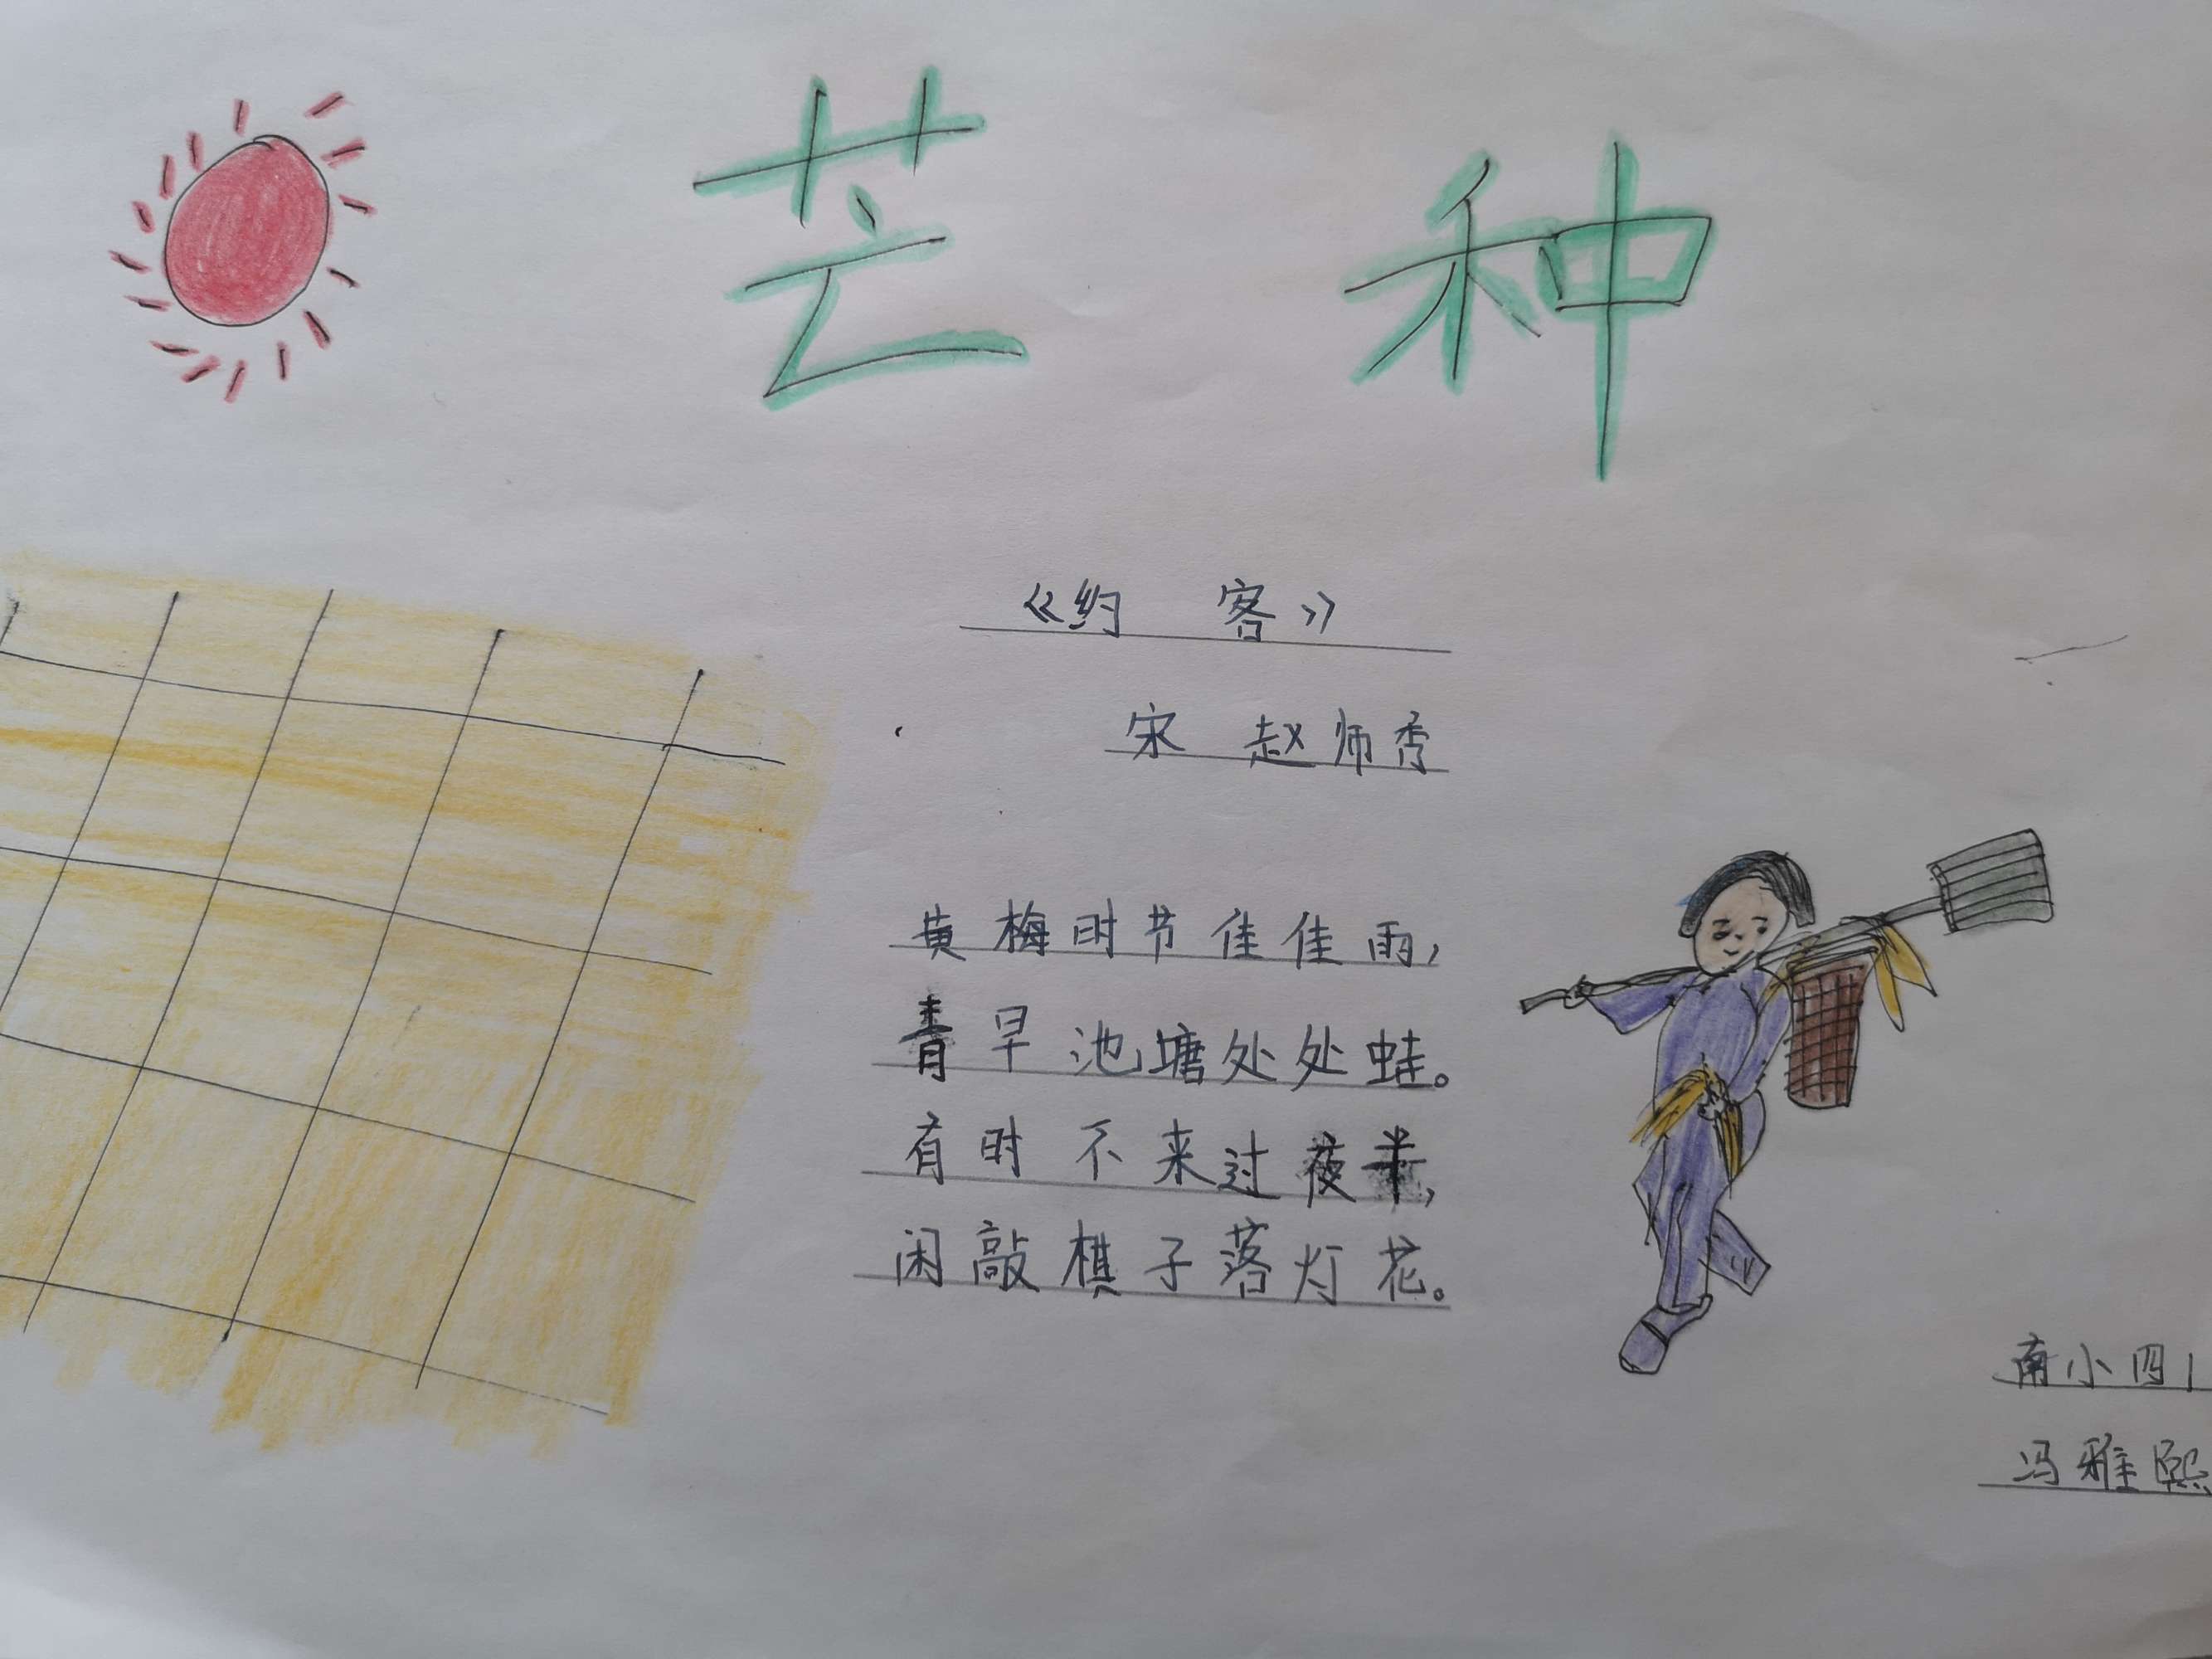 芒种
《约 客》
宋 赵师秀
黄梅时节佳佳雨，
青早池塘处处蛙。
有时不来过夜半，
闲敲棋子落灯花。
南小四1
冯雅熙